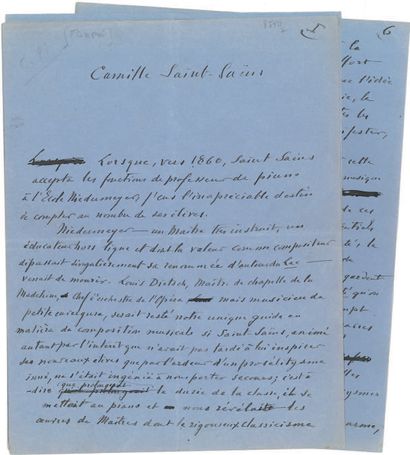 5
Camille Saint-Saëns
Lorsque, vers 1860, Saint Saëns
accepta les fonctions de professeur de piano
à l'École Niedermeyer, j'eus l'inappréciable destin
de compter au nombre de ses élèves.
Niedermeyer — un Maître très instruit, un
éducateur hors ligne et dont la valeur comme compositeur
dépassait singulièrement sa renommée d'auteur du Lac —
venait de mourir. Louis Dietsch, Maître de chapelle de la
Madeleine, Chef d'orchestre de l'Opéra mais musicien de
petite envergure, serait resté notre unique guide en
matière de composition musicale si Saint Saëns, animé
autant par l'intérêt que n'avait pas tardé à lui inspirer
ses nouveaux élèves que par l'ardeur d'un prosélytisme
inné, ne s'était ingénié à nous porter secours; c'est à
que prolongeant
dire la durée de la classe, il se
mettait au piano et nous révélait des
œuvres de Maîtres dont le rigoureux classicisme
6
la
l'idée
la
les
cette
musique
de ces